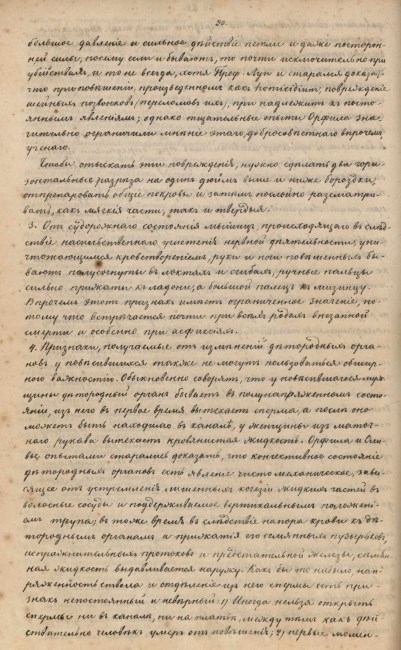 20.
большое давленіе и сильное дѣйствіе петли и даже посторон-
ней силы, посему если и бываютъ, то почти исключительно при
убійствахъ, и то не всегда, хотя Проф. и старался доказать,
что при повѣшеніи, произведенномъ какъ homicidium, поврежденіе
шейныхъ позвонковъ (переломъ ихъ) принадлежитъ къ посто-
яннымъ явленіямъ; однако тщательные опыты Орфила зна-
чительно ограничили мнѣніе этаго добросовѣстнаго впрочемъ
ученаго.
Чтобы отыскать эти поврежденія, нужно сдѣлать два гори-
зонтальныхъ разрѣза на одинъ дюймъ выше и ниже бороздки,
отпрепаровать общіе покровы и затѣмъ послойно разсматри-
вать, какъ мягкія части, такъ и твердыя.
3. Отъ судорожнаго состоянія мышицъ, происходящаго въ слѣд-
ствіе насильственнаго угнетенія нервной дѣятельности, уни-
чтожающимся кровотвореніемъ, руки и ноги повѣшенныхъ бы-
ваютъ полусогнуты въ локтяхъ и, ручные пальцы
сильно прижаты къ ладоне, а большой палецъ къ мизинцу.
Впрочемъ этотъ признакъ имѣетъ ограниченное значеніе, по-
тому что встрѣчается почти при всѣхъ родахъ внезапной
смерти и особенно при асфиксіяхъ.
4. Признаки, получаемые отъ измѣненій дѣтородныхъ орга-
новъ у повѣсившихся также не могутъ пользоваться обшир-
ного важностію. Обыкновенно говорятъ, что у повѣсившагося муж-
щины дѣтородный органъ бываетъ въ полунапряженномъ состо-
яніи, изъ него въ первое время вытекаетъ сперма, а послѣ оно
можетъ быть находимо въ каналѣ, у женщины изъ маточ-
наго рукава вытекаетъ кровянистая жидкость. Орфила и
опытами старались доказать, что состояніе
дѣтородныхъ органовъ есть явленіе чисто механическое, зави-
сящее отъ устремленія лишенныхъ жидкихъ частей въ
волосные сосуды и поддерживаемое вертикальнымъ положені-
емъ трупа; въ тоже время въ слѣдствіе напора крови къ дѣ-
тороднымъ органамъ и прижатія его сѣменныхъ пузырьковъ,
протоковъ и предстательной железы,
ная жидкость выдавливается наружу. Какъ бы то ни было на-
пряженность ствола и отдѣленіе изъ него спермы есть при-
знакъ непостоянный и невѣрный: 1) Иногда нельзя открыть
спермы ни въ каналѣ, ни на платьѣ, между тѣмъ какъ дѣй-
ствительно человѣкъ умеръ отъ повѣшенія; 2) первые